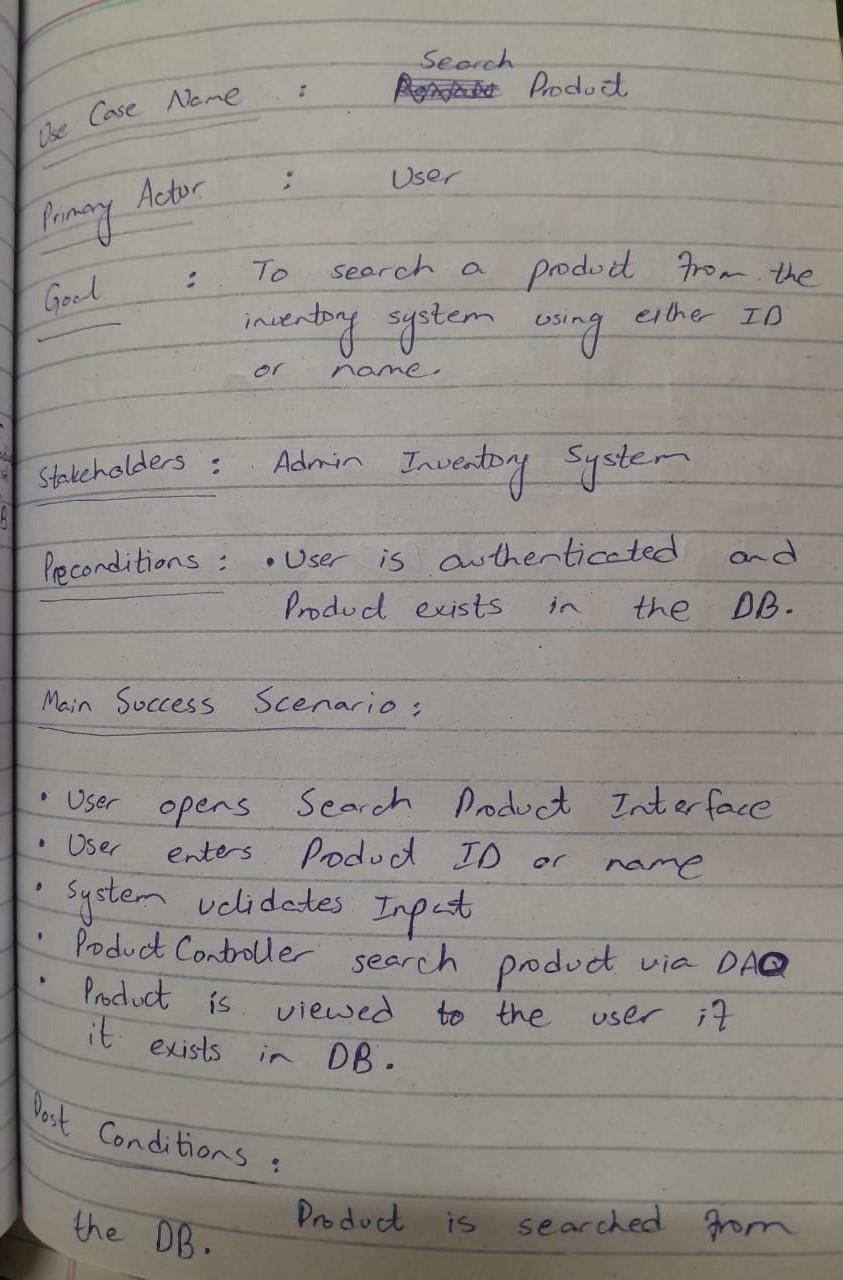 Search
Use Case Name : Product
Primary Actor : User
Goal : To search a product from the
inventory system using either ID
or name.
Stakeholders : Admin Inventory System
Preconditions : • User is authenticated and
Product exists in the DB.
Main Success Scenario :
• User opens Search Product Interface
• User enters Product ID or name
• System validates Input
• Product Controller search product via DAO
• Product is viewed to the user if
it exists in DB.
Post Conditions :
Product is searched from
the DB.